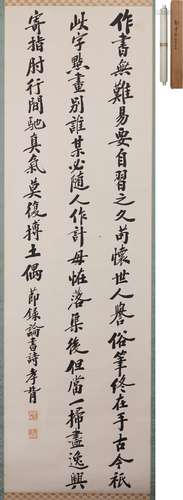 作書無難易要自習之久苟懷世人譽俗筆終在手古今祇
此字點畫別誰某必隨人作計毋怪落渠後但當一掃盡逸興
寄指肘行間馳真氣莫復摶土偶
節錄論書詩孝胥